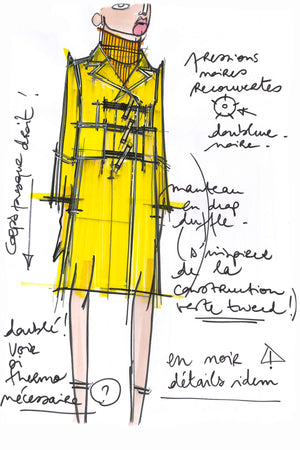 pressions
noires
recouvertes
doublure
noire.
coupe presque droit !
manteau
en drap
duffle.
(s'inspirer
de la
construction
veste tweed !)
doublé !
voir
si
thermo
nécessaire
?
en noir !
détails idem